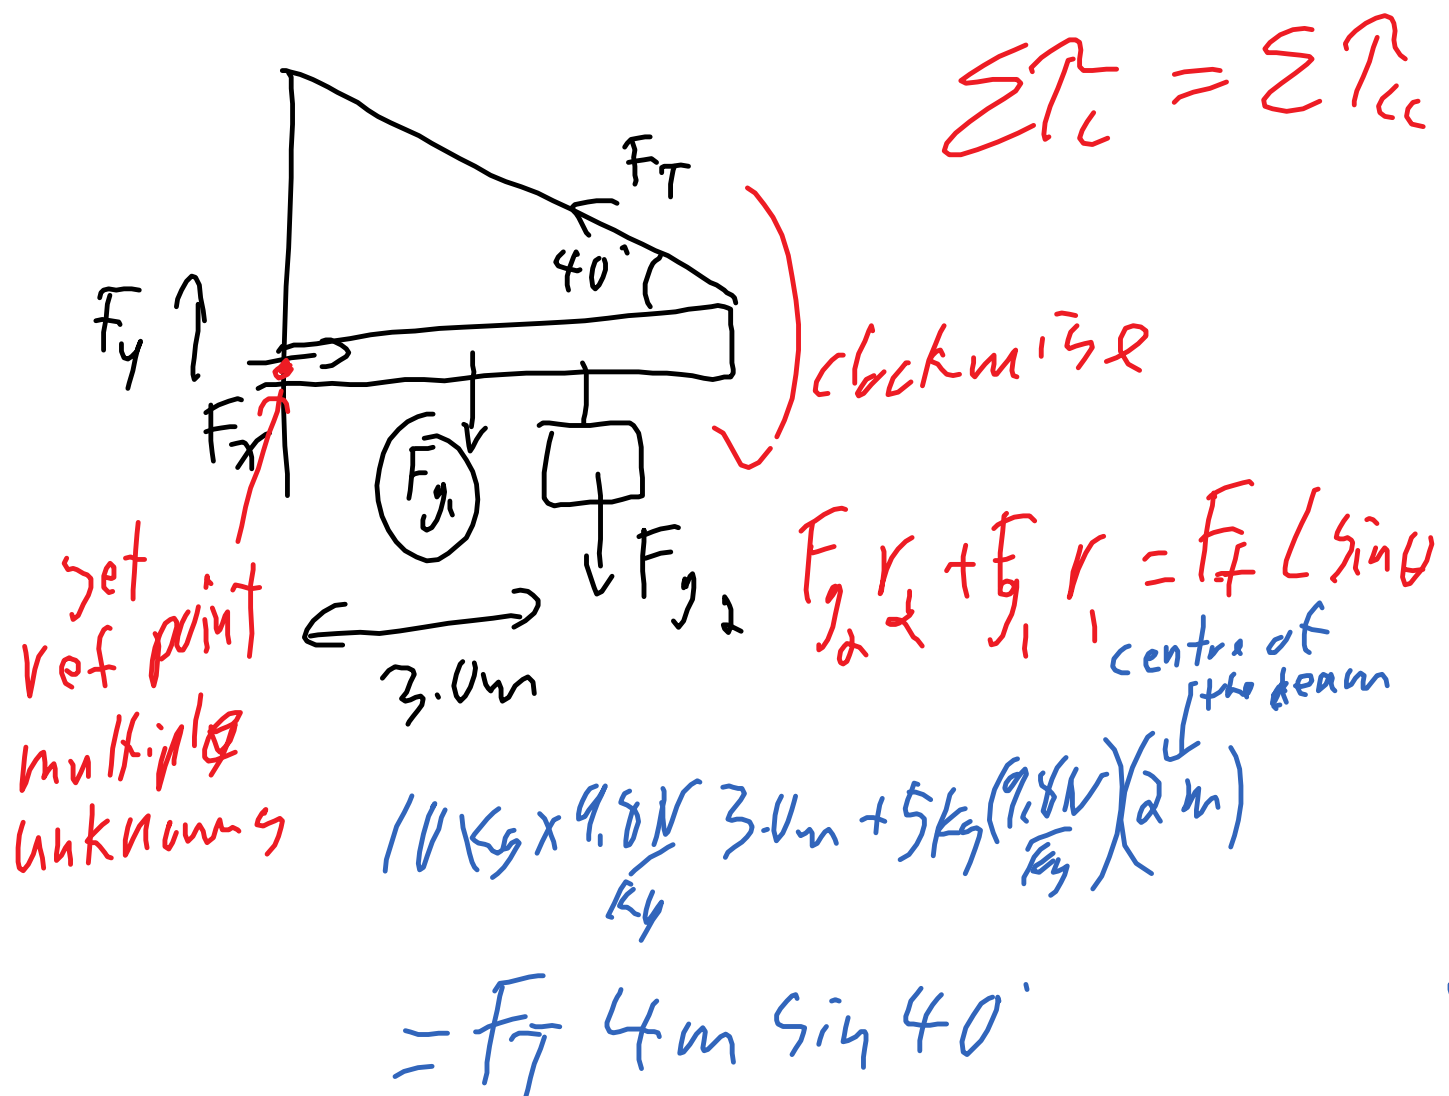 Στc = Στcc
FT
40°
Fy
Fx
clockwise
Fg1
Fg2
3.0m
set
ref point
multiple
unknowns
Fg2 r2 + Fg1 r1 = FT L sinθ
centre of
the beam
10kg x 9.8N/kg 3.0m + 5kg(9.8N/kg)(2m)
= FT 4m sin 40°